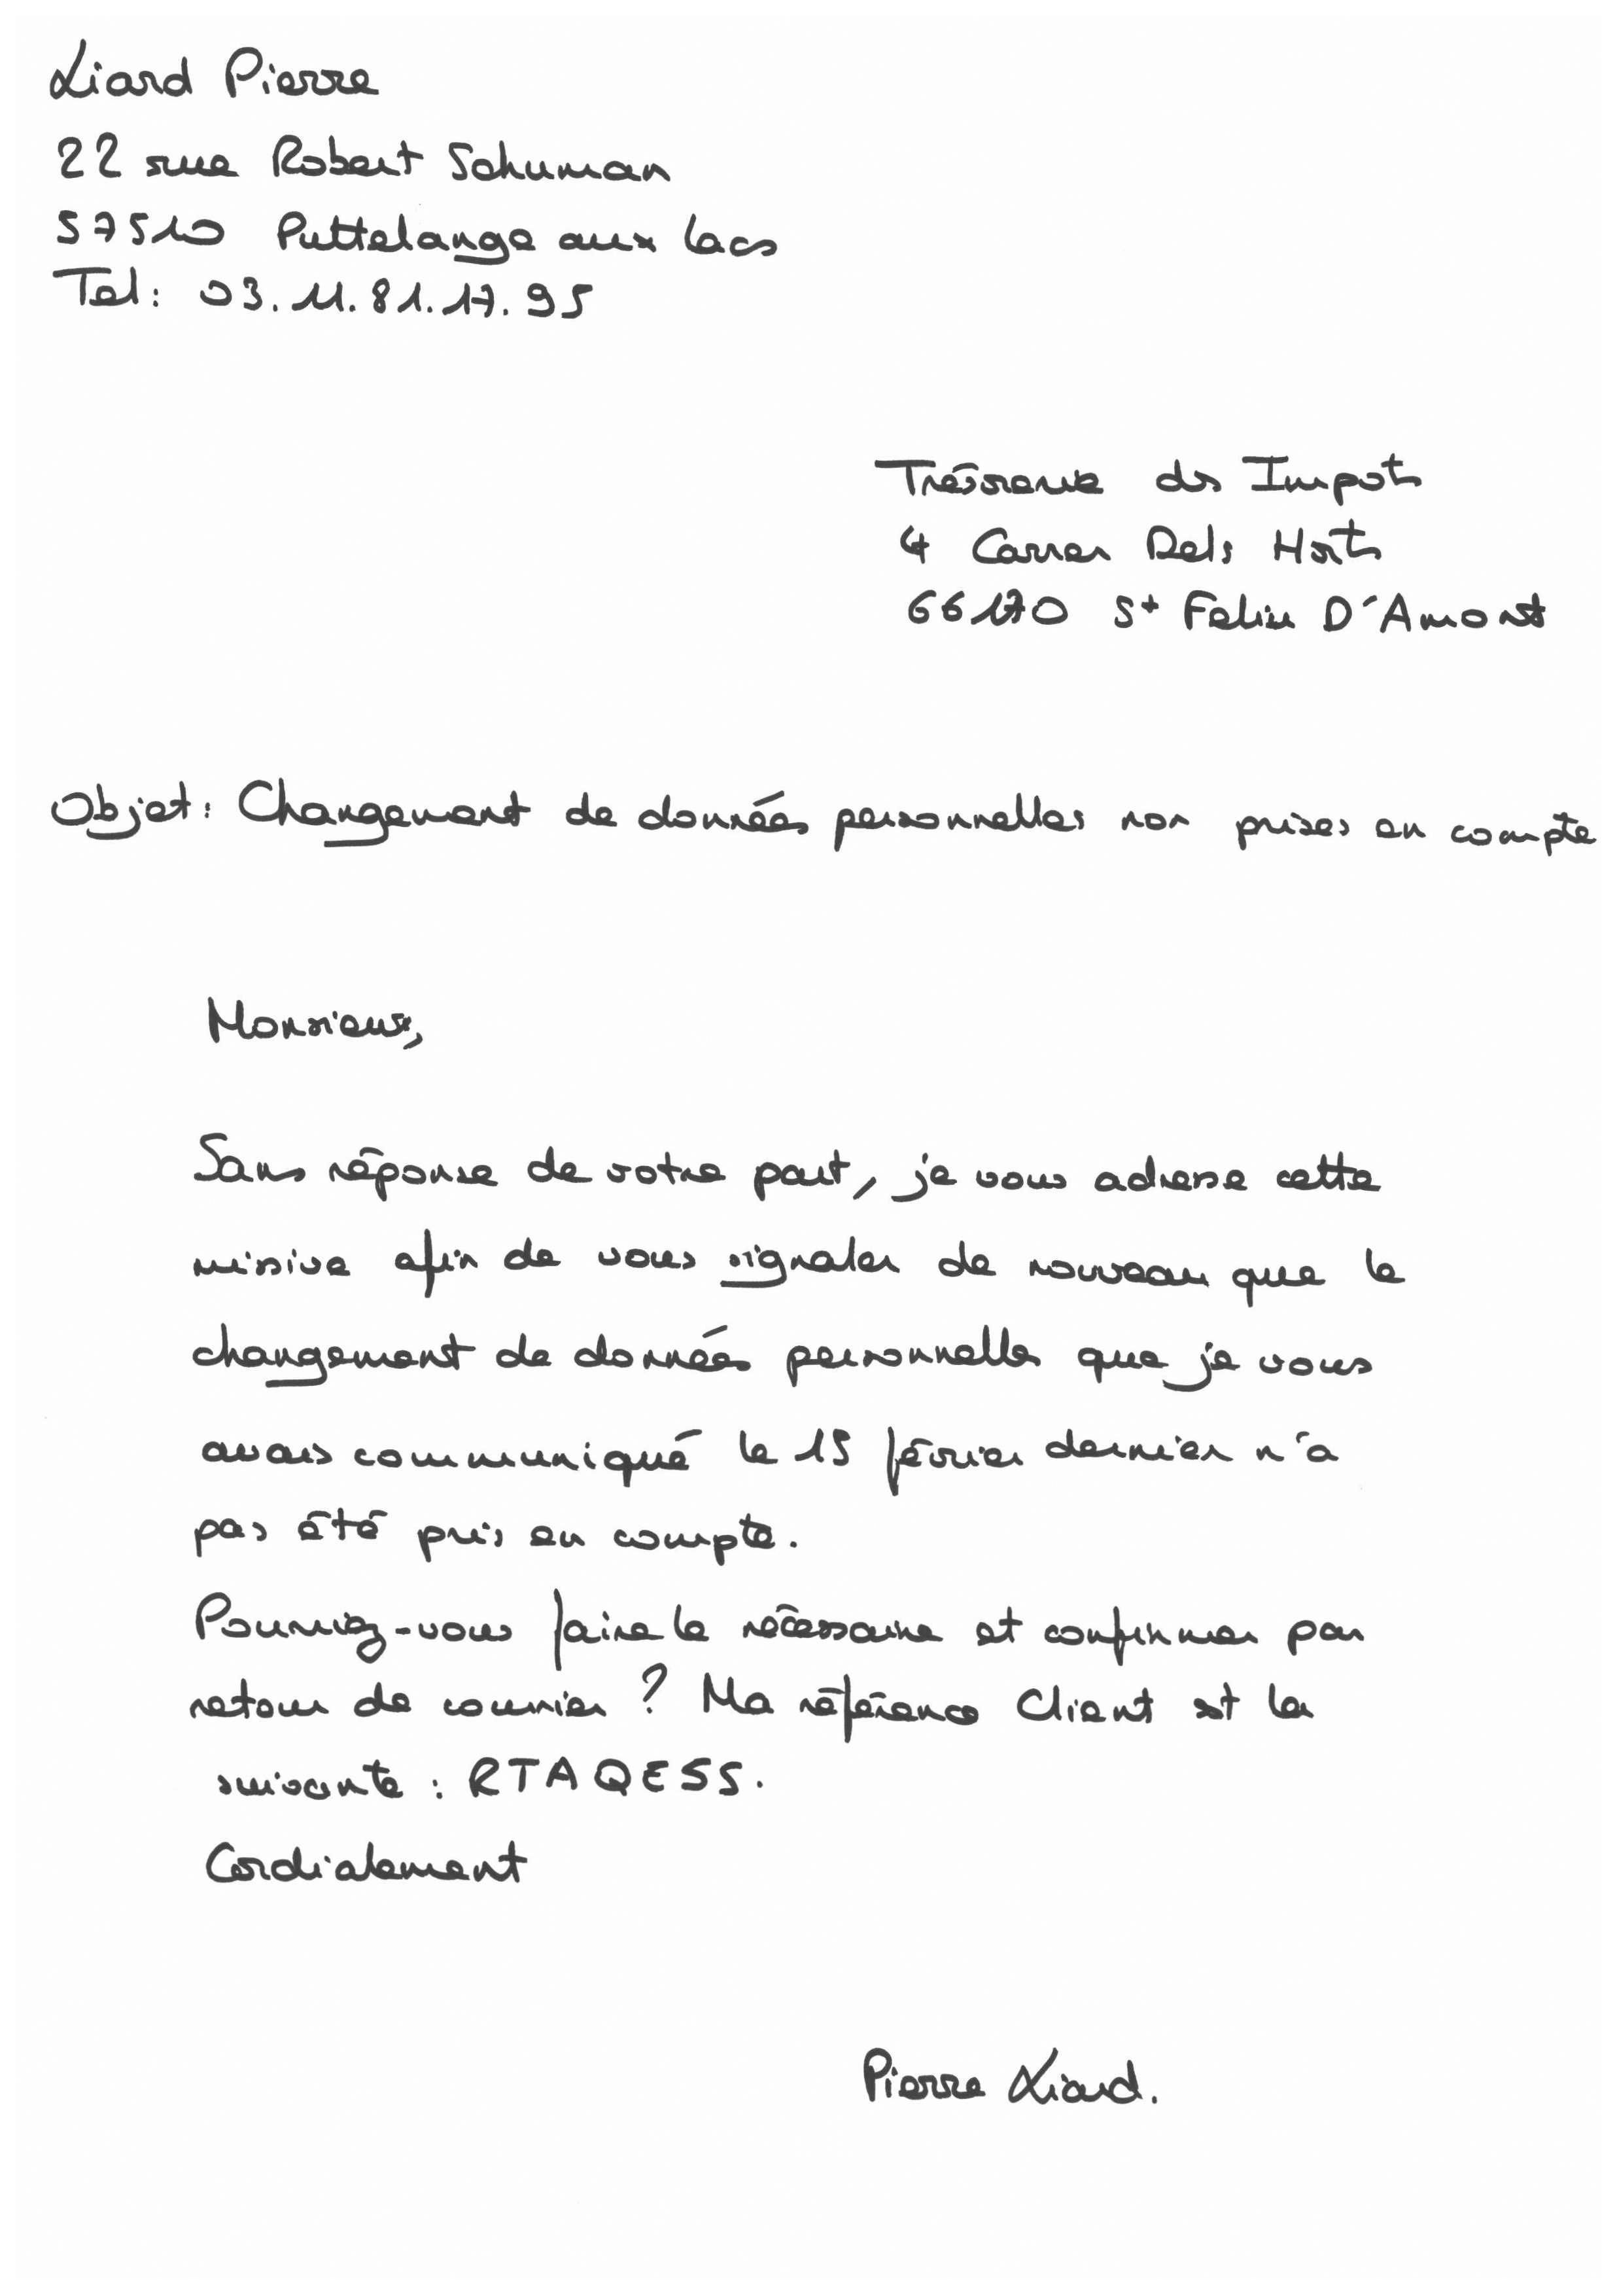 Liard Pierre
22 rue Robert Schuman
57510 Puttelange aux lacs
Tel: 03.11.81.17.95
Trésorerie des Impots
4 Carrer Dels Horts
66170 St Feliu D'Amont
Objet: Changement de données personnelles non prises en compte
Monsieur,
Sans réponse de votre part, je vous adresse cette
missive afin de vous signaler de nouveau que le
changement de données personnelles que je vous
avais communiqué le 15 février dernier n'a
pas été pris en compte.
Pourriez-vous faire le nécessaire et confirmer par
retour de courrier ? Ma référence Client est la
suivante : RTAQESS.
Cordialement
Pierre Liard.